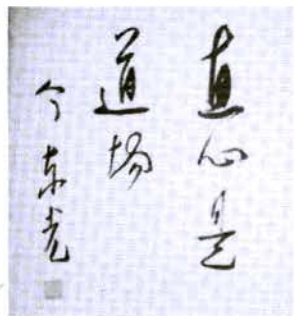 直心是
道場
今東光